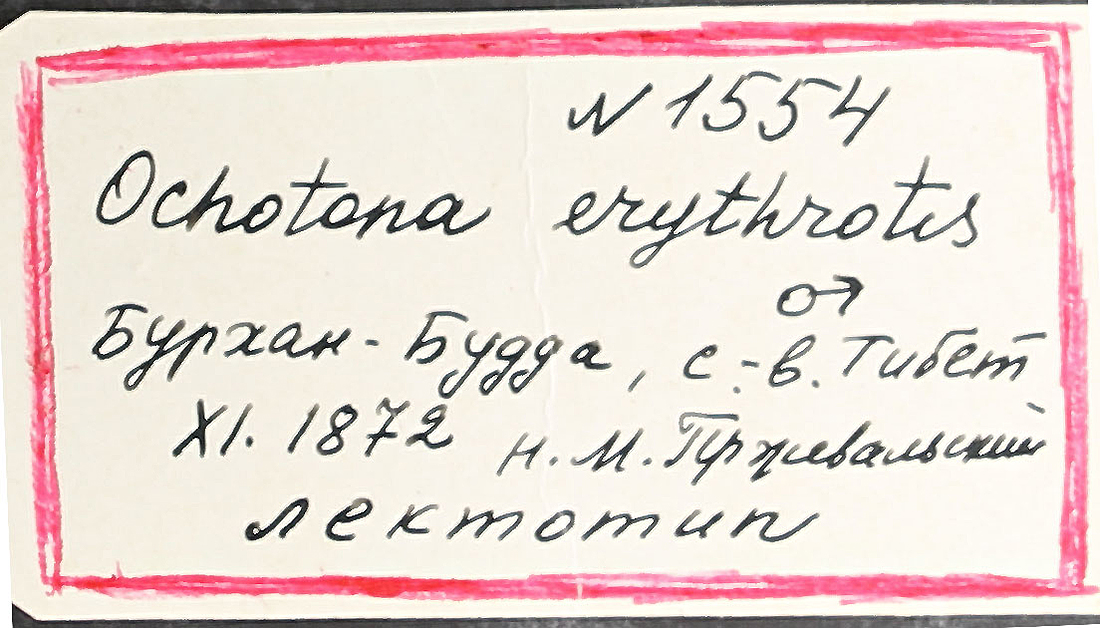 N 1554
Ochotona erythrotis
♂
Бурхан-Будда, с.-в. Тибет
XI. 1872 Н. М. Пржевальский
лектотип